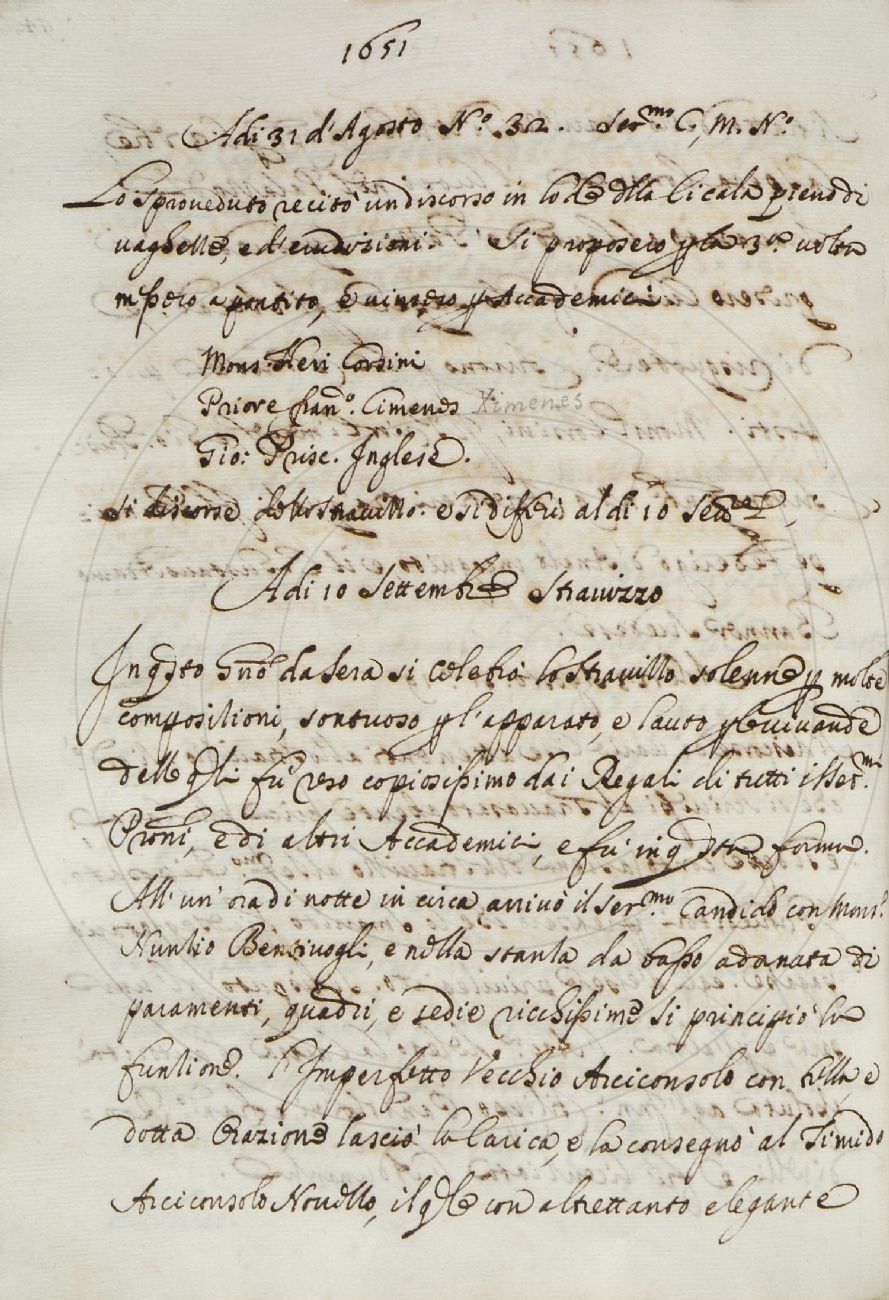 1651
Adi 31 d'Agosto N.º 32. Ser.mo C, M. N.º
Lo Sproveduto recitò un discorso in lode della Cicala pieno di
vaghezze, e d'erudizioni. Si proposero p la 3.a volta
messero a partito, e vinsero p Accademici
Mons. Neri Corsini
Priore Fran.º Cimenes Ximenes
Gio: Price. Inglese.
si discorse dello stravizzo. e si diferì al dì 10
Adi 10 Settembre Stravizzo
In qsto Gno da sera si celebrò lo Stravizzo solenne p molte
compositioni, sontuoso p l'apparato, e lauto p le vivande
delle qli fu reso copiosissimo dai Regali di tutti i Ser.mi
Proni, e di altri Accademici, e fu in qsta forma.
All'un' ora di notte in circa arrivò il Ser.mo Candido con Mons.r
Nuntio Bentivogli, e nella stanza da basso adornata di
paramenti, quadri, e sedie ricchissime si principiò la
funtione. l'Imperfetto Vecchio Arciconsolo con bella, e
dotta Orazione lasciò la Carica, e la consegnò al Timido
Arciconsolo Novello, il qle con altrettanto elegante